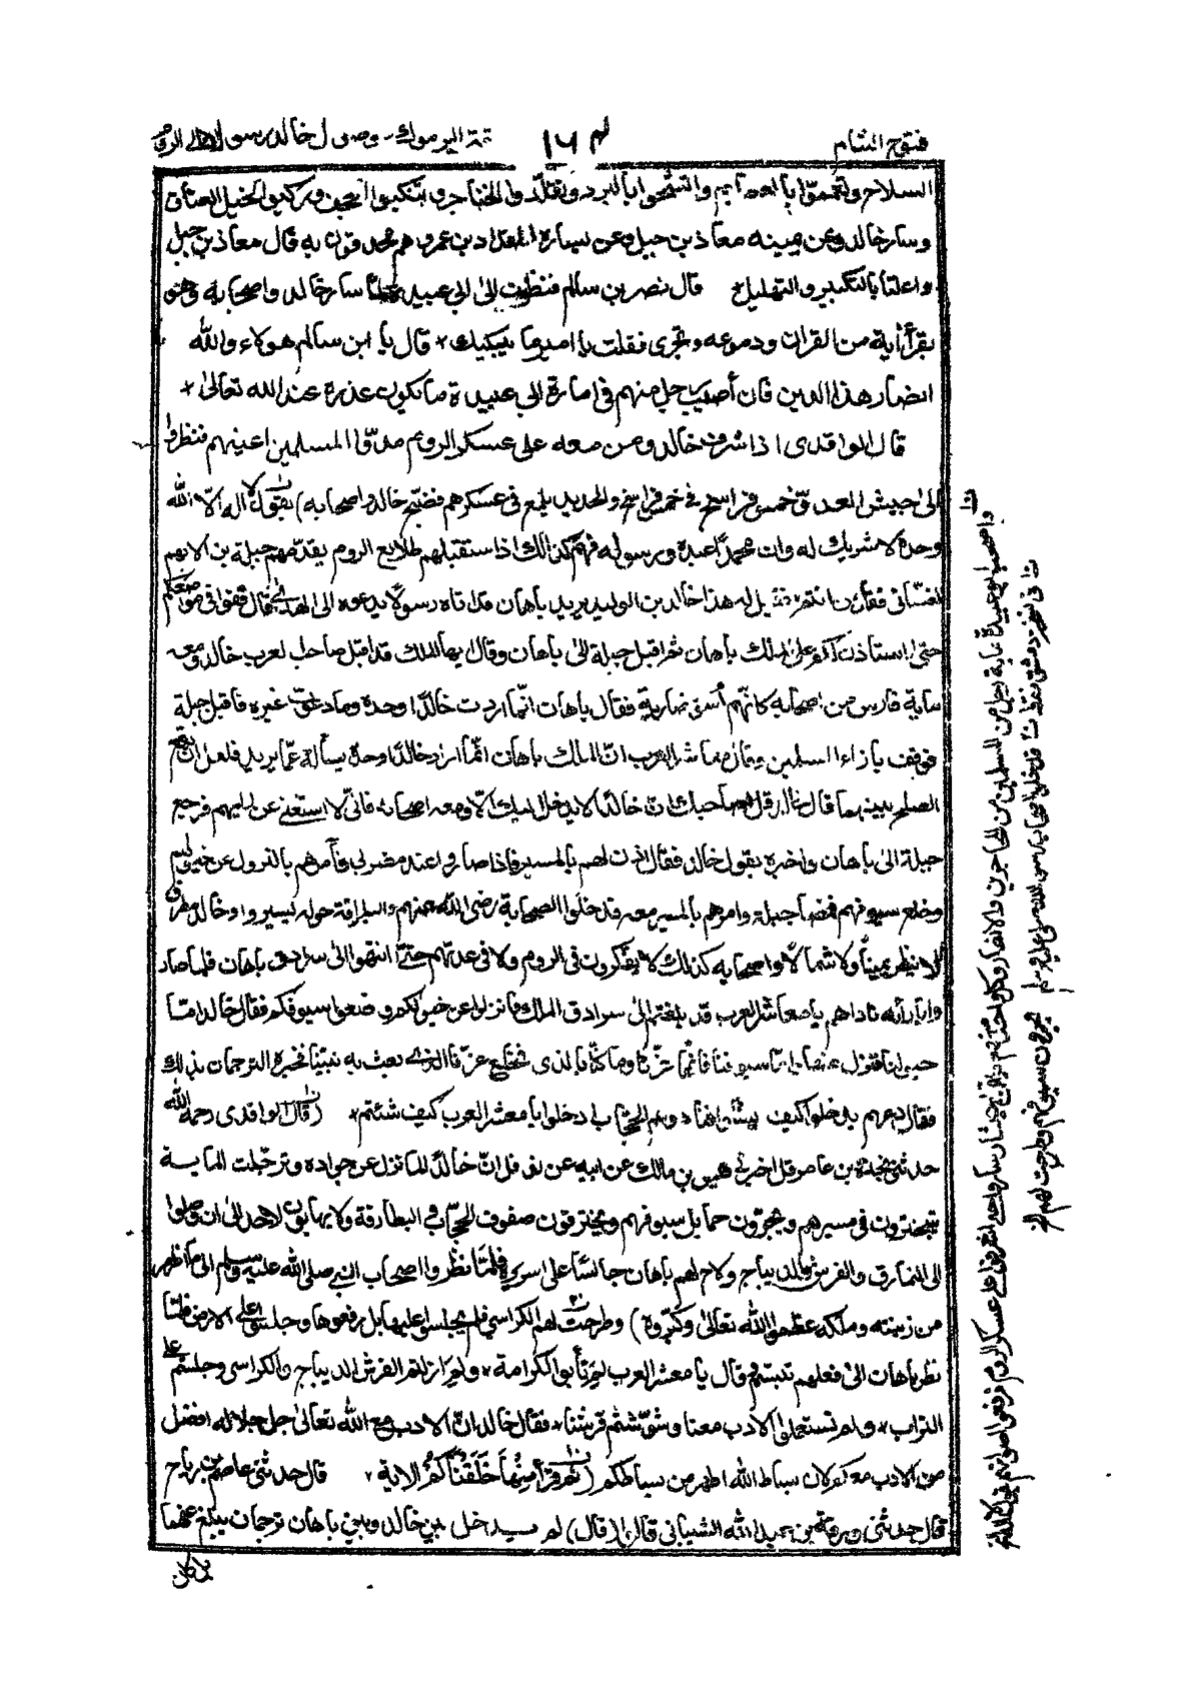 فتوح الشام
١٦٤
تتمة اليرموك - وصول خالد رسولا الى الروم
السلاح وتعمموا بالعمائم والتشحوا بالبرد وتقلدوا الخناجر وتنكبوا الحجف وركبوا الخيل العتاق
وسار خالد وعن يمينه معاذ بن جبل وعن يساره المقداد بن عمرو وهم محدقون به قال معاذ بن جبل
واعلنا بالتكبير والتهليل * قال نصر بن سالم فنظرت الى ابى عبيدة لما سار خالد واصحابه وهو
يقرأ أية من القران ودموعه تجرى فقلت يا امير ما يبكيك * قال يا ابن سالم هولاء والله
انصار هذا الدين فان أصيب رجل منهم فى امارة ابى عبيدة ما يكون عذره عند الله تعالى *
قال الواقدى اذا شرف خالد ومن معه على عسكر الروم مدّوا المسلمين اعينهم فنظروا
الى جيش العدو خمس فراسخ فى خمس فراسخ والحديد يلمع فى عسكرهم فضج خالد واصحابه) يقول لا اله الا الله
وحده لا شريك له وان محمدًا عبده ورسوله فهم كذالك اذا ستقبلهم طلايع الروم يقدّمهم جبلة بن الايهم
الغسانى فقال من انتم فقيل له هذا خالد بن الوليد يريد باهان قد اتاه رسولًا يدعوه الى الهدى قال قفوا فى مواضعكم
حتى استاذن لكم على الملك باهان ثم اقبل جبلة الى باهان وقال ايها الملك قد اقبل صاحب لعرب خالد ومعه
ماية فارس من اصحابه كانّهم أسد ضارية فقال باهان انّما اردت خالدًا وحده وما دعوت غيره فاقبل جبلة
فوقف بازاء المسلمين وقال معاشر العرب انّ الملك باهان انّما اراد خالدًا وحده يسأله عمّا يريد فلعل ان يقع
الصلح بينهما قال خالد قل لصاحبك انّ خالدًا لا يدخل اليك الّا ومعه اصحابه فانّى لا استغنى عن رايهم فرجع
جبلة الى باهان واخبره بقول خالد فقال اذن لهم بالمسير فاذا صاروا عند مضربى فأمرهم بالنزول عن خيولهم
وخلع سيوفهم فمضى جبلة وامرهم بالمسير معه فدخلوا الصحابة رضى الله عنهم والبطارقة حوله ليسيروا وخالد مطرق
لا ينظر يمينًا ولا شمالًا واصحابه كذلك لا يفكرون فى الروم ولا فى عدتهم حتّى انتهوا الى سرادق باهان فلما صاروا
وازائه ناداهم يا معاشر العرب قد بلغتم الى سرادق الملك فانزلوا عن خيولكم وضعوا سيوفكم فقال خالد امّا
خيولنا فننزل عنها وامّا سيوفنا فانّها عزّنا وما كنّا بالذى نخلع عزّنا الذى بعث به نبيّنا فخبره الترجمان بذلك
فقال دعوهم يدخلوا كيف يشاؤا فنادوهم الحجّاب ادخلوا يا معشر العرب كيف شئتم * (قال الواقدى رحمه الله
حدثنى نجدة بن عامر قال اخبرنى هبير بن مالك عن ابيه عن نوفل انّ خالدًا لما نزل عن جواده وترجّلت الماية
يتبخترون فى مسيرهم ويجرّون حمايل سيوفهم ويخترقون صفوف الحجّاب والبطارقة ولا يهابون لاحد الى ان وصلوا
الى النمارق والفرش والديباج ولاح لهم باهان جالسًا على سريره فلمّا نظروا اصحاب النبى صلى الله عليه وسلم الى ما ظهر
من زينته وملكه عظموا الله تعالى وكبّروه) وطرحت لهم الكراسى فلم يجلسوا عليها بل رفعوها وجلسوا على الارض فلمّا
نظر باهان الى فعلهم تبسّم وقال يا معشر العرب لم تأبوا الكرامة * ولم ازلتم الفرش الديباج والكراسى وجلستم على
التراب * ولم تستعملوا الادب معنا وشوّشتم فرشنا * فقال خالد انّ الادب مع الله تعالى جل جلاله افضل
من الادب معكم لان بساط الله اطهر من بساطكم (ثم قرأ مِنْهَا خَلَقْنَاكُمْ الاية * قال حدثنى عاصم بن رياح
قال حدثنى ورقة بن عبد الله الشيبانى قال (قال) لم يدخل بين خالد وبين باهان ترجمان يبلغ عنهما
واصحاب ابو عبيدة ماية رجل من المسلمين من المهاجرين والانصار
على عسكر الروم رفعوا اصواتهم
يجرون سيوفهم وطرحت لهم الخ
بل كان